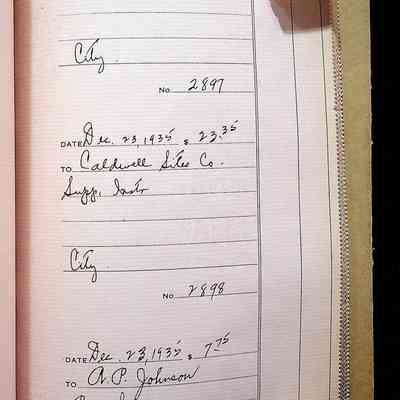 City
No 2897
DATE Dec. 23, 1935 $ 23.35
TO Caldwell Sites Co.
Supp. Instr
City
No 2898
DATE Dec. 23, 1935 $ 7.75
TO A.P. Johnson